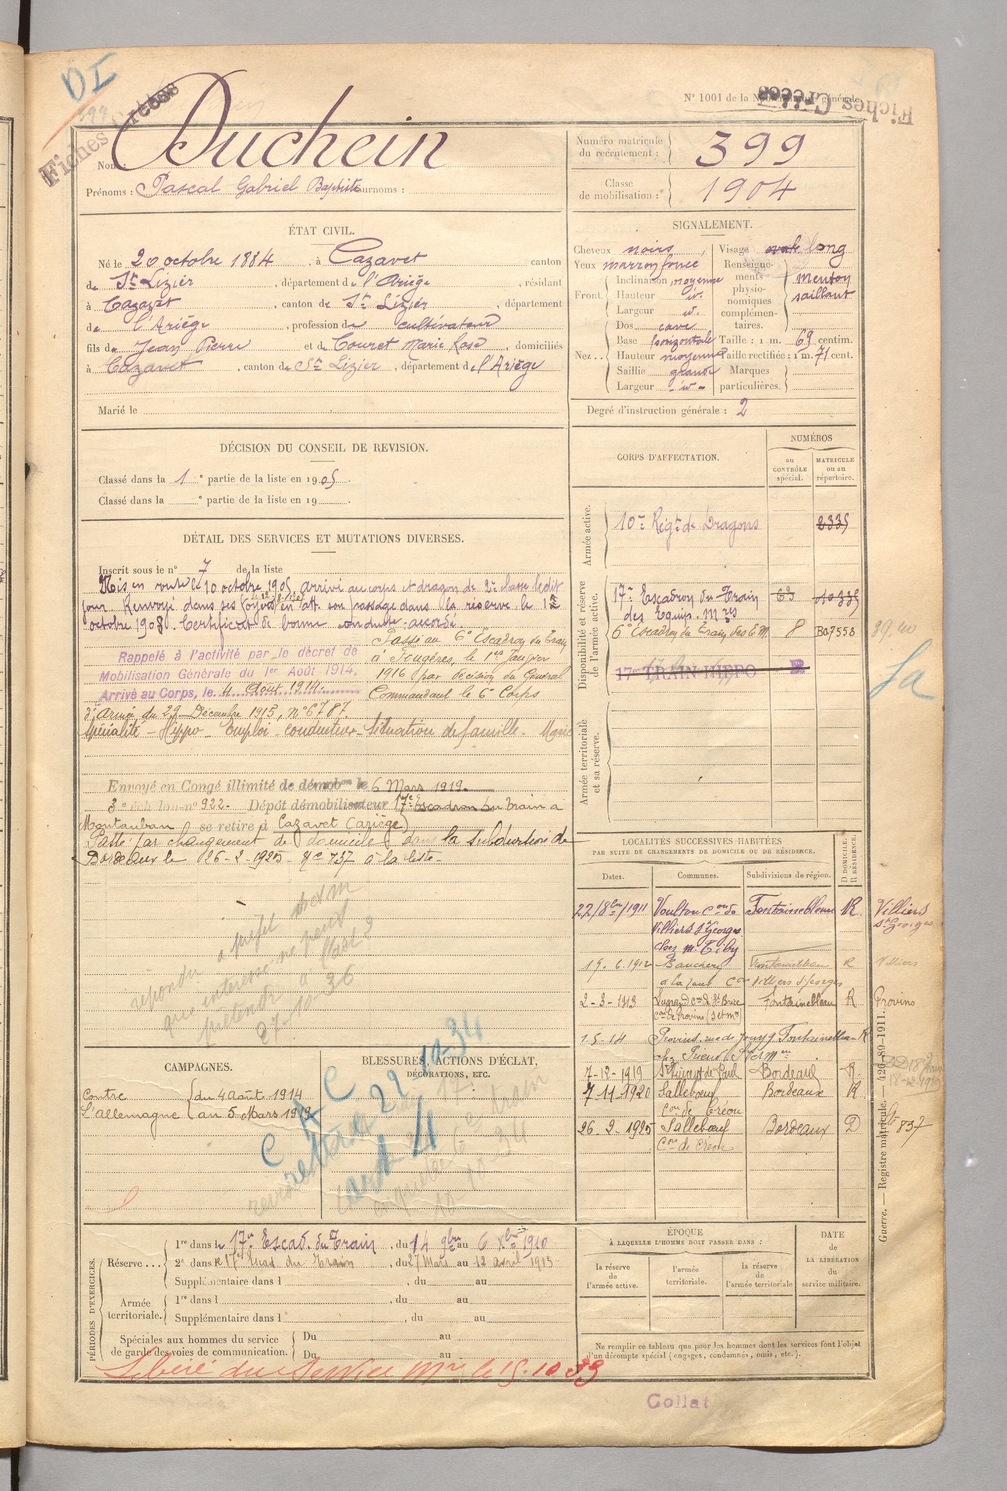 DI
399
Fiches Créées
N° 1001 de la Nomenclature générale.
Fiches Créées
Nom : Duchein
Prénoms : Pascal Gabriel Baptiste Surnoms :
Numéro matricule du recrutement : 399
Classe de mobilisation : 1904
ÉTAT CIVIL.
Né le 20 octobre 1884, à Cazavet canton
de St Lizier, département de l'Ariège, résidant
à Cazavet, canton de St Lizier, département
de l'Ariège, profession de cultivateur
fils de Jean Pierre et de Couret Marie Rose, domiciliés
à Cazavet, canton de St Lizier, département de l'Ariège
Marié le
SIGNALEMENT.
Cheveux noirs
Yeux marron foncé
Front. Inclinaison moyenne
Hauteur id.
Largeur id.
Nez... Dos cave
Base horizontale
Hauteur moyenne
Saillie grande
Largeur id
Visage ovale long
Renseignements physionomiques complémentaires. menton saillant
Taille : 1 m. 69 centim.
Taille rectifiée : 1 m. 71 cent.
Marques particulières.
Degré d'instruction générale : 2
DÉCISION DU CONSEIL DE REVISION.
Classé dans la 1e partie de la liste en 1905.
Classé dans la e partie de la liste en 19
CORPS D'AFFECTATION.
NUMÉROS
au CONTRÔLE spécial.
MATRICULE ou au répertoire.
Armée active.
10e Régt de Dragons 2335
Disponibilité et réserve de l'armée active.
17e Escadron du Train des Equip. Mres 63 10335
6e Escadron du Train des E.M. 8 B07558
39,40
17e TRAIN HIPPO
Armée territoriale et sa réserve.
DÉTAIL DES SERVICES ET MUTATIONS DIVERSES.
Inscrit sous le n° 7 de la liste
Mis en route le 10 octobre 1905 arrivé au corps et dragon de 2e classe le dit
jour. Renvoyé dans ses foyers en att. son passage dans la réserve le 1er
octobre 1908. Certificat de bonne conduite accordé.
Rappelé à l'activité par le décret de
Mobilisation Générale du 1er Août 1914.
Arrivé au Corps, le 4 Août 1914
Passé au 6e Escadron du Train
à Fougères, le 1er Janvier
1916 par décision du Général
Commandant le 6e Corps
d'Armée du 29 Décembre 1915, n° 6787
Spécialité - Hippo - Emploi - conducteur - Situation de famille - Marié
Envoyé en Congé illimité de démobon le 6 Mars 1919.
3e éch. lon n° 922. Dépôt démobilisateur 17e Escadron du Train à
Montauban se retire à Cazavet (Ariège)
Passé par changement de domicile dans la subdivision de
Bordeaux le 26-2-1925 - N° 737 à la liste.
27-10-36
LOCALITÉS SUCCESSIVES HABITÉES
PAR SUITE DE CHANGEMENTS DE DOMICILE OU DE RÉSIDENCE.
D DOMICILE. R RÉSIDENCE.
Dates. Communes. Subdivisions de région.
22/8bre/1911 Voulton Con de Villiers St Georges Fontainebleau R. Villiers St Georges
19.6.1912 Fontainebleau R Villiers
2-3-1913 Fontainebleau R Provins
1-5-14 Provins, rue de Jouy Fontainebleau R
7-12-1919 St Vincent de Paul Bordeaux R.
7-11-1920 Salleboeuf Con de Créon Bordeaux R
26-2-1925 Salleboeuf Con de Créon Bordeaux D
837
Guerre. — Registre matricule. — 426-89-1911.
CAMPAGNES.
Contre l'Allemagne du 4 août 1914 au 5 Mars 1919
BLESSURES, ACTIONS D'ÉCLAT, DÉCORATIONS, ETC.
CAC
22-10-34
PÉRIODES D'EXERCICES.
Réserve... 1re dans le 17e Escad. du Train, du 14 9bre au 6 Xbre 1910
2e dans le 17e Escad. du Train du 27 Mars au 12 avril 1913
Supplémentaire dans l , du au
Armée territoriale. 1re dans l , du au
Supplémentaire dans l , du au
Spéciales aux hommes du service de garde des voies de communication. Du au
Du au
ÉPOQUE
À LAQUELLE L'HOMME DOIT PASSER DANS :
la réserve de l'armée active.
l'armée territoriale.
la réserve de l'armée territoriale
DATE DE LA LIBÉRATION du service militaire.
Ne remplir ce tableau que pour les hommes dont les services font l'objet d'un décompte spécial (engagés, condamnés, omis, etc.).
Libéré du Service Mre le 15.10.33
Collat